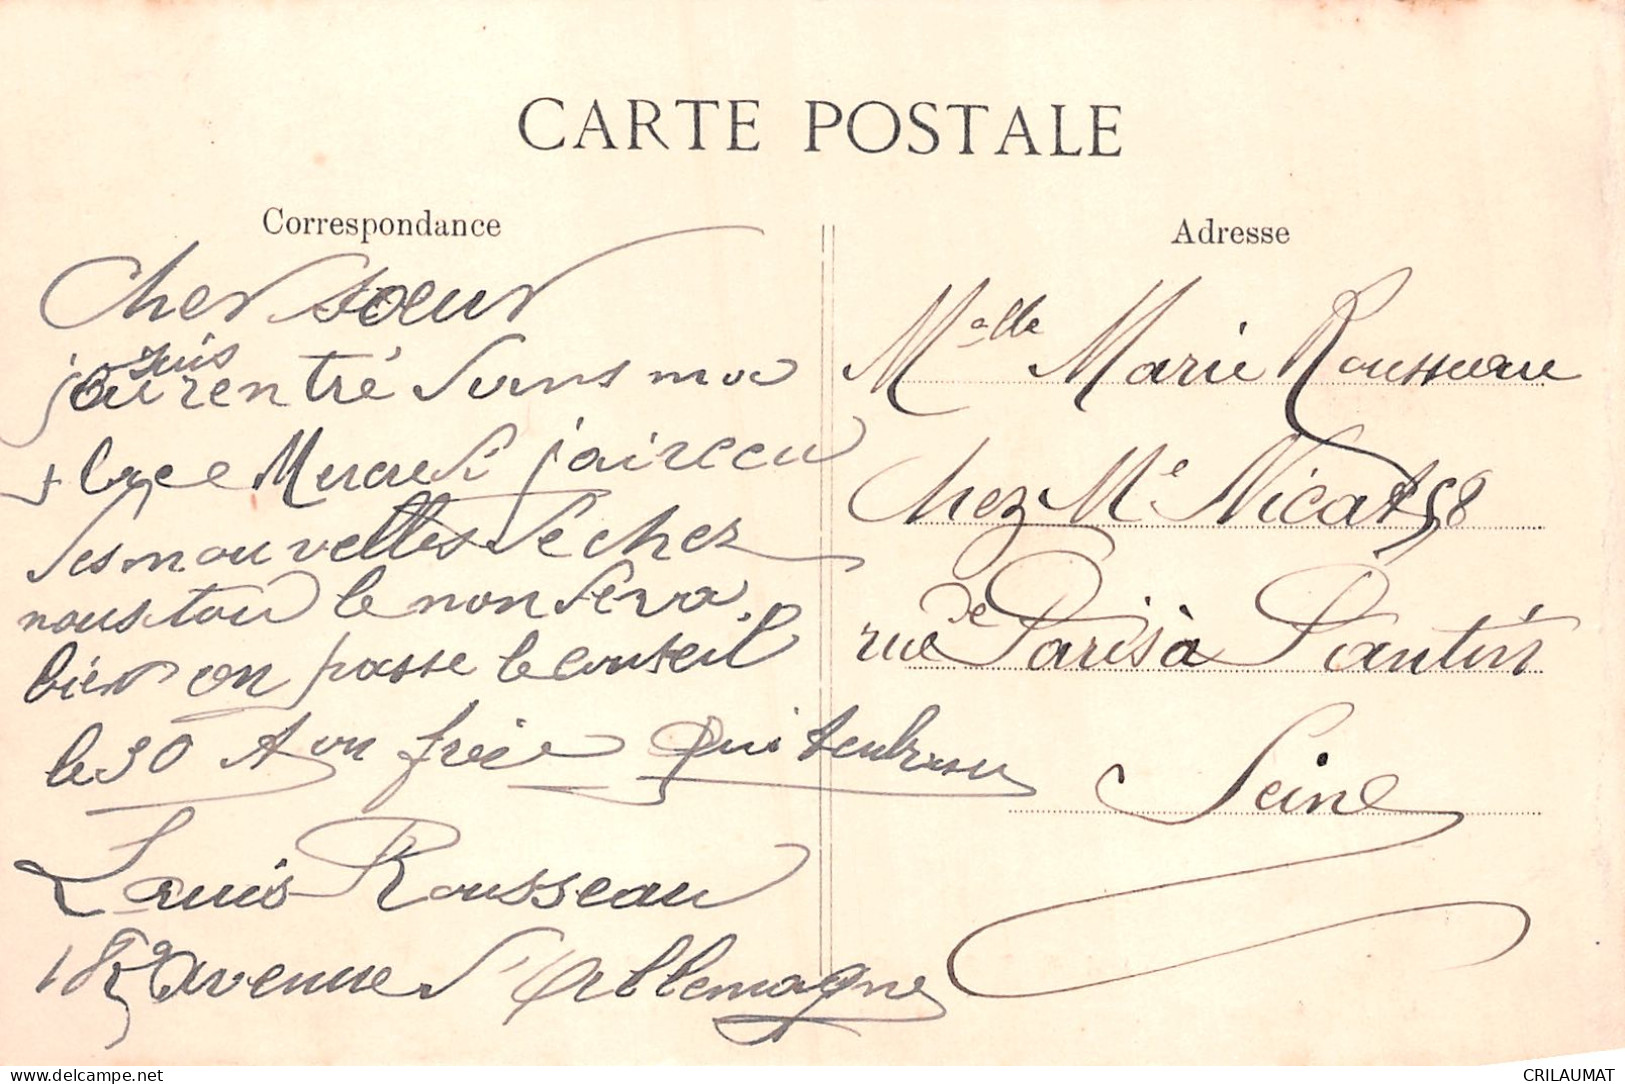 CARTE POSTALE
Correspondance
Cher sœur
suis
j'ai rentré dans ma
place Mercredi j'ai recu
des nouvelles de chez
nous tou le non Sera
bien on passe le conseil
le 30 ton frère qui
Louis Rousseau
avenue d'Allemagne
Adresse
Melle Marie Rousseau
chez Me Nicat 58
rue de Paris à Pantin
Seine
CRILAUMAT